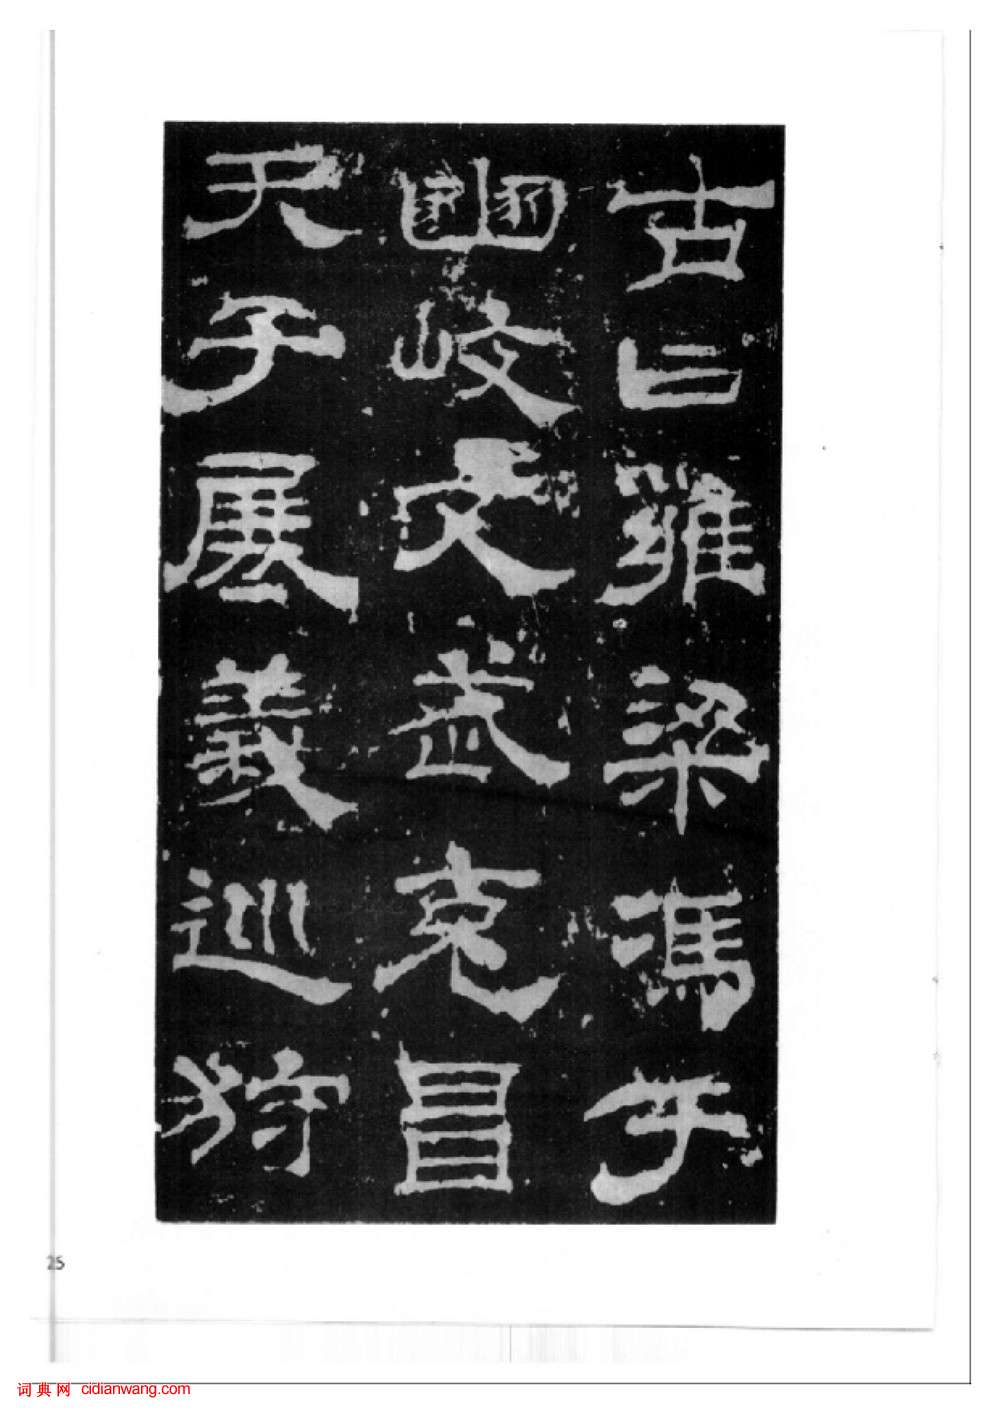 古曰雍梁馮于
豳岐文武克昌
天子展義巡狩
25
词典网 cidianwang.com